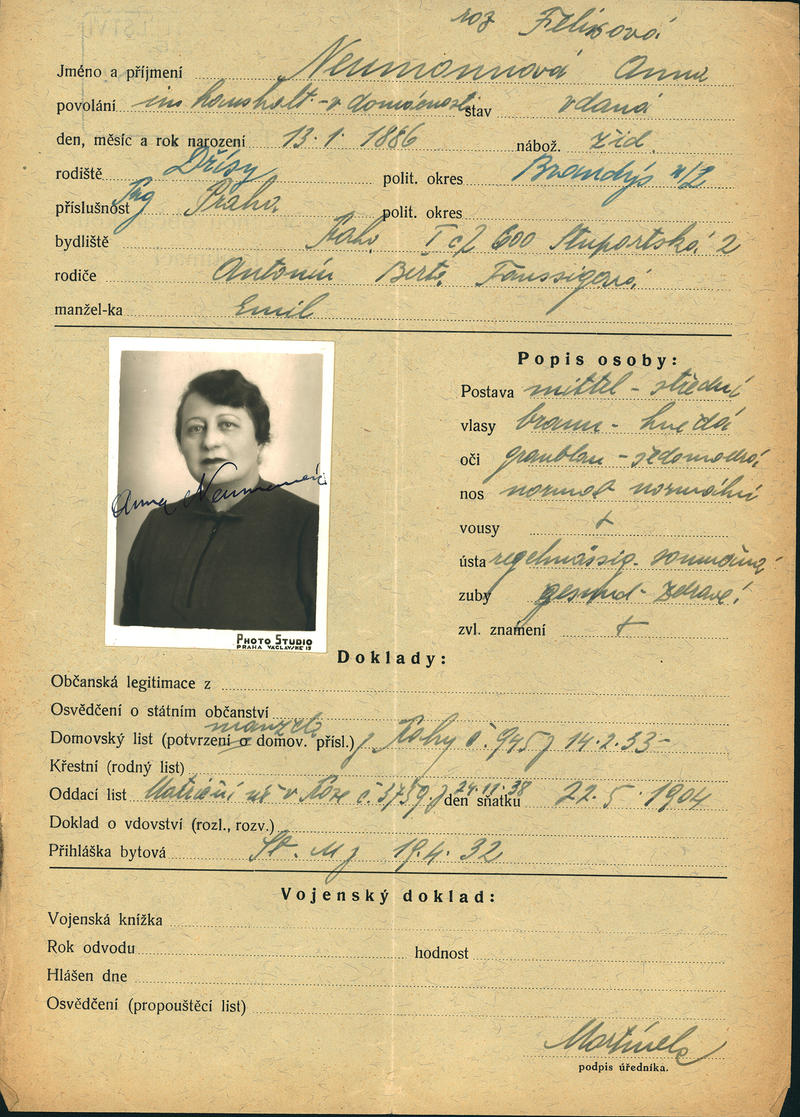 roz Felixová
Jméno a příjmení Neumannová Anna
povolání im Haushalt - v domácnosti stav vdaná
den, měsíc a rok narození 13. 1. 1886 nábož. žid.
rodiště Dřísy polit. okres Brandýs n/L
příslušnost Prag Praha polit. okres
bydliště Praha I čp 600 Stupartská 2
rodiče Antonín Berta Taussigová
manžel-ka Emil
Popis osoby:
Postava mittel - střední
vlasy braun - hnědá
oči graublau - šedomodrá
nos normal normální
vousy
ústa regelmässig - souměrná
zuby gesund - zdravé
zvl. znamení
Anna Neumannová
PHOTO STUDIO
PRAHA VÁCLAVSKÉ 19
Doklady:
Občanská legitimace z
Osvědčení o státním občanství
manžela
Domovský list (potvrzení o domov. přísl.) z Prahy č. 945 z 14. 2. 33
Křestní (rodný list)
Oddací list č 3759 z 24.11.38 den sňatku 22. 5. 1904
Doklad o vdovství (rozl., rozv.)
Přihláška bytová St. M z 19. 4. 32
Vojenský doklad:
Vojenská knížka
Rok odvodu hodnost
Hlášen dne
Osvědčení (propouštěcí list)
Martínek
podpis úředníka.